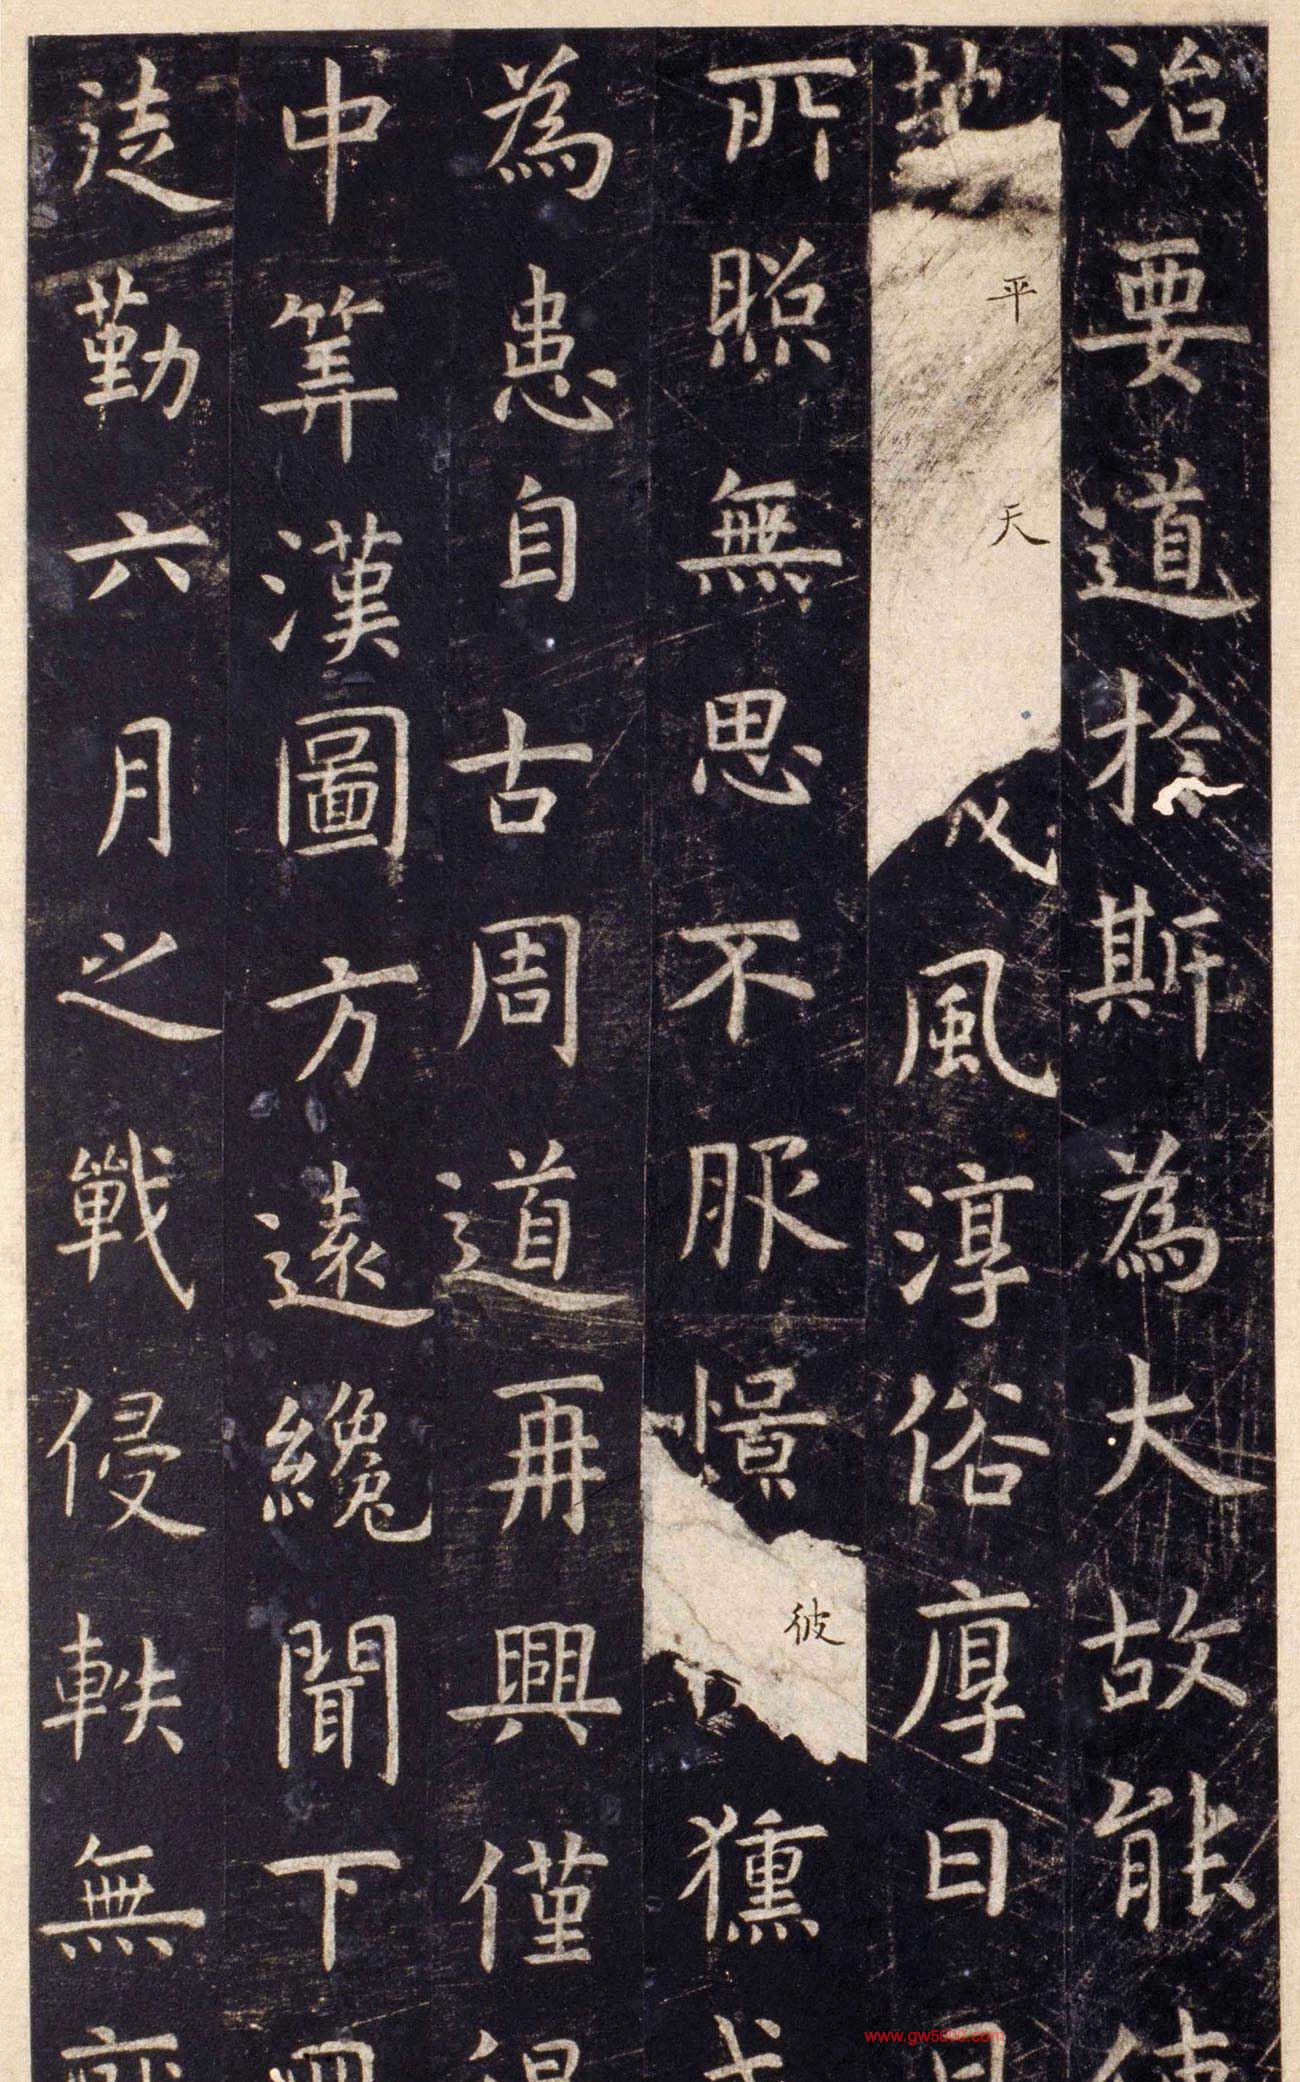 治要道於斯為大故能使
地平天成風淳俗厚日月
所照無思不服憬彼獯戎
為患自古周道再興僅得
中筭漢圖方遠纔聞下
徒勤六月之戰侵軼無